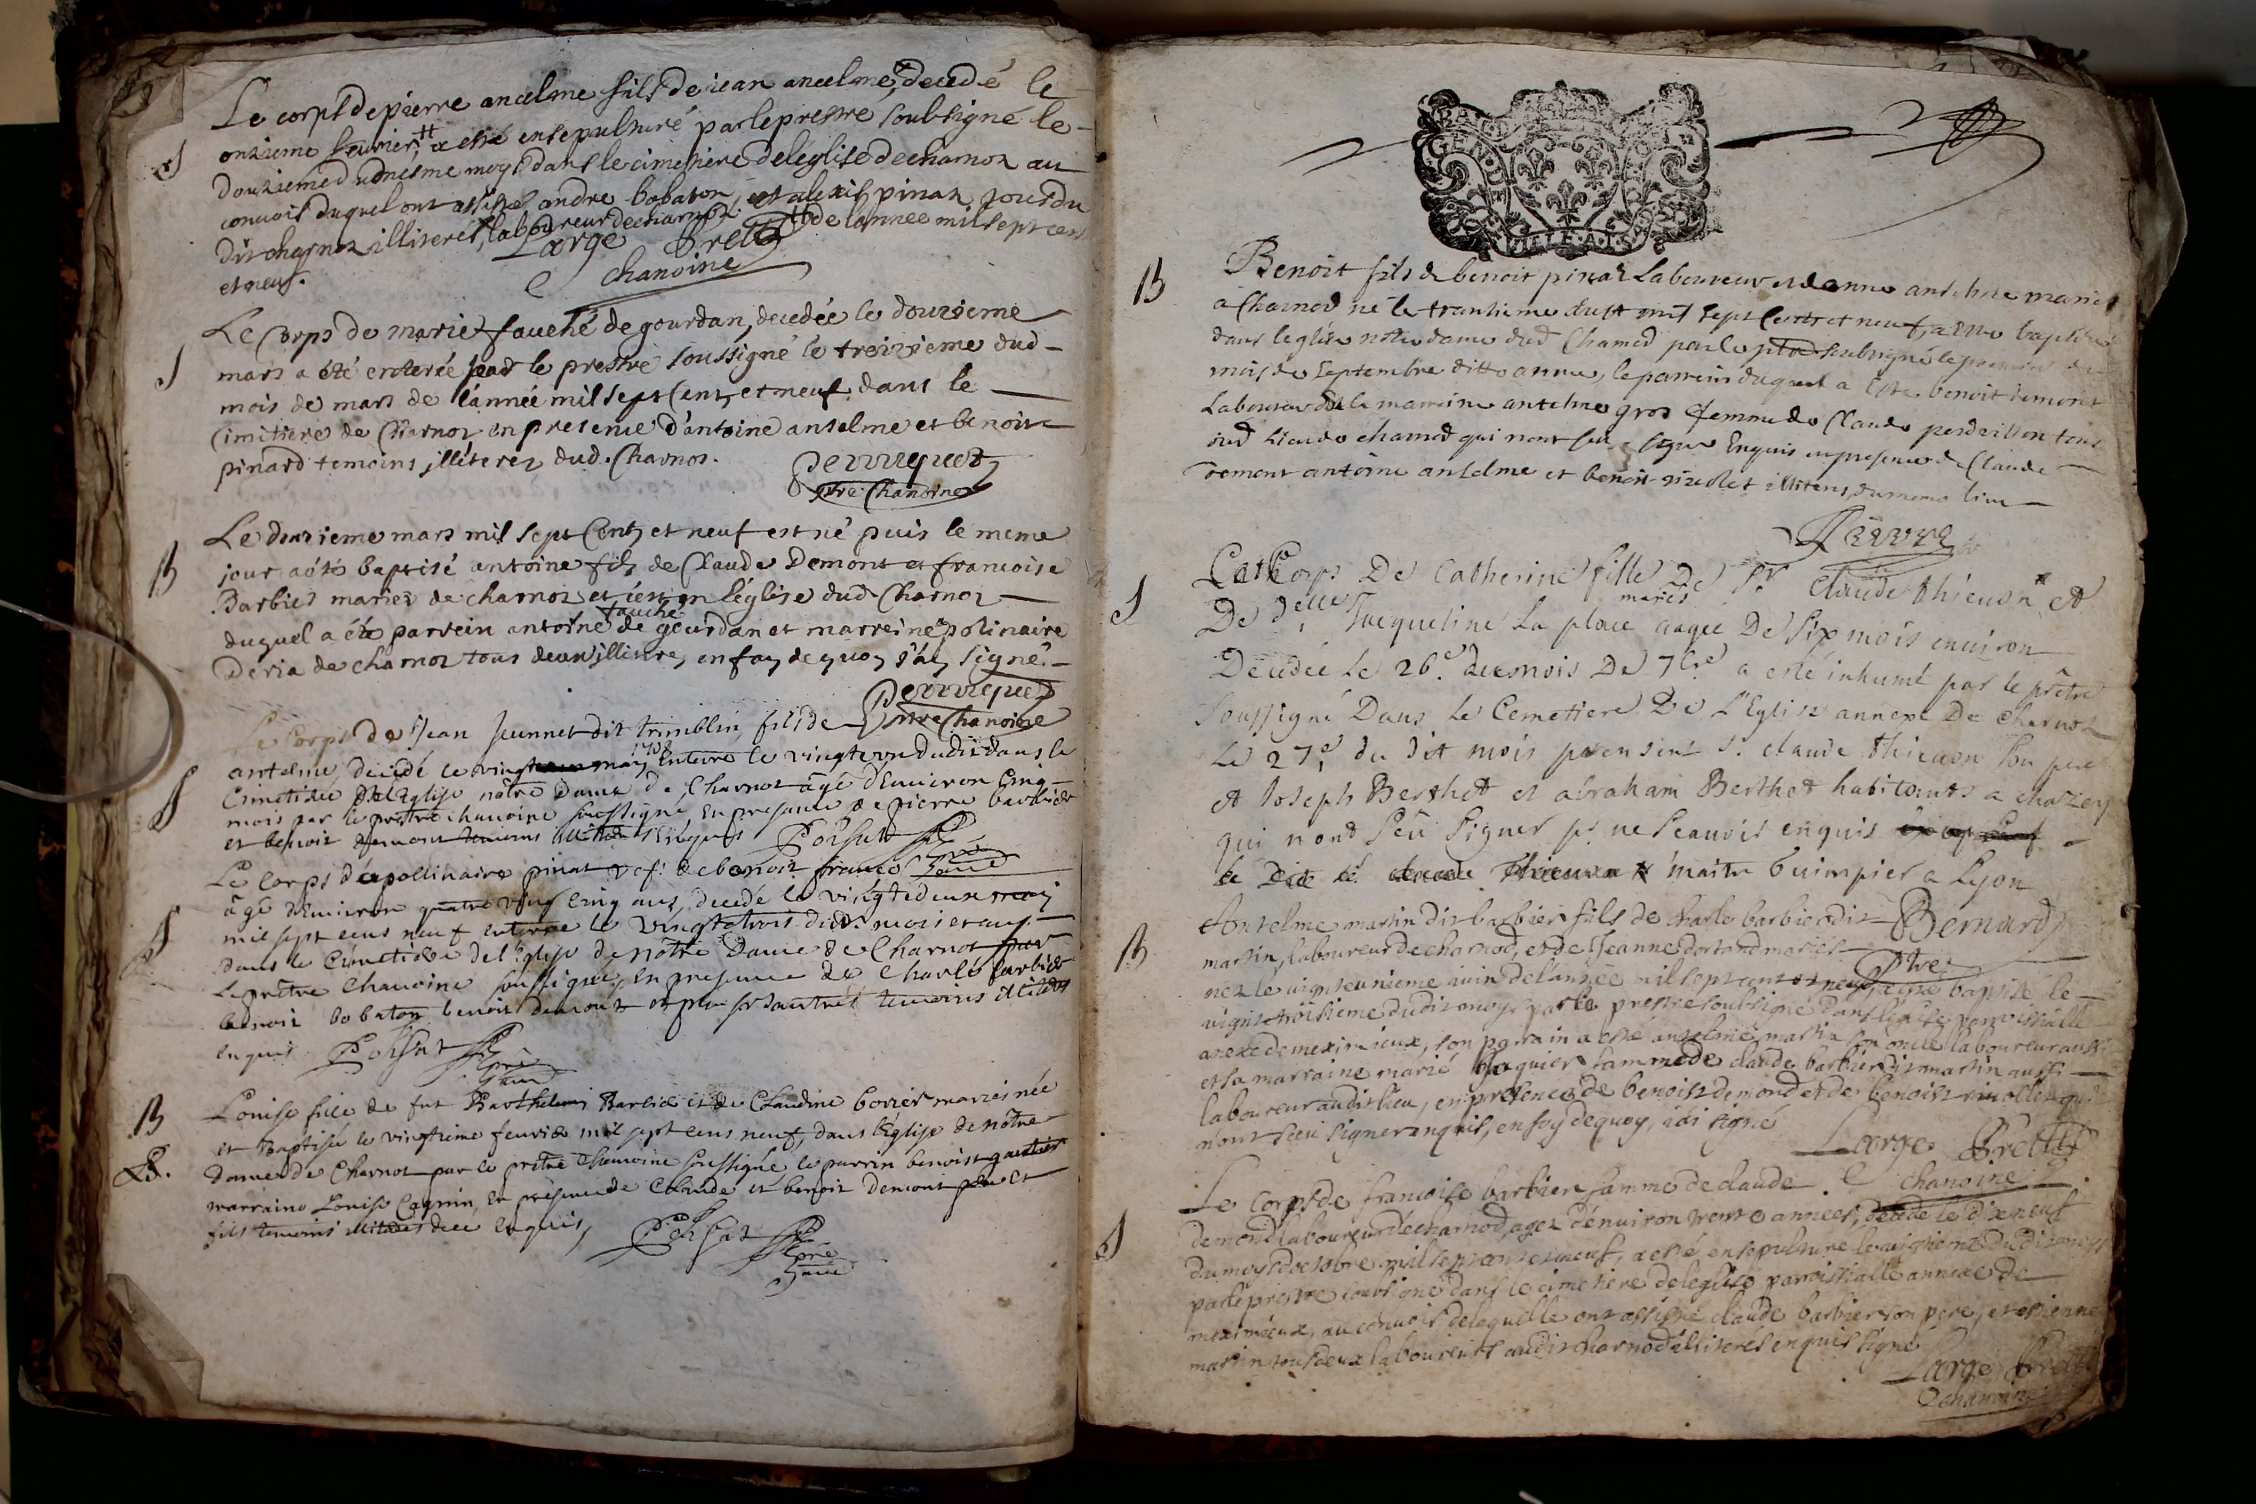 Le corps de pierre ancelme fils de iean ancelme, decedé le
onzieme feurier,# a esté ensepulturé par le prestre soubsigné le
douzieme du mesme moys dans le cimetiere de leglise de charnoz au
conuois duquel ont assisté andre bobaton, et alexis pinaz, tous du
dit charnoz illiteres, laboureur de charnoz # de lannee mil sept cens
et neuf.
Large Prett
chanoine
Le Corps de marie fauché de gourdan, decedée le douzieme
mars a été enterée par le prestre soussigné le treizieme dud
mois de mars de l'année mil sept Cent et neuf dans le
Cimitiere de Charnoz en presence d'antoine anselme et benoit
pinard temoins illiterez dud. Charnoz.
Perruquet
ptre Chanoine
Le douzieme mars mil sept Centz et neuf est né puis le meme
jour a été baptisé antoine filz de Claude Demont et francoise
Barbier mariez de charnoz et ce en l'église dud Charnoz
fauché
duquel a été parrein antoine de gourdan et marreine apolinaire
Deria de charnoz tous deux illitere, en foy de quoy j'ay signé.
Perruquet
ptre Chanoine
Le Corps de Jean Jeunnet dit trimblin fils de
antelme, decidé le vingt may 1709 Enterre le vingt et un dudit dans le
Cimetiere de l'Eglise notre Dame de Charnoz âgé d'Enuiron Cinq
mois par le prêtre chanoine soussigné, En presance de pierre barbier
et benoit demont temoins illiteres Enquis Poissat Ptre
Chane
Le Corps d'apollinaire pinat vef. de benoit france
âgé d'Enuiron quatre vingt Cinq ans, decedé le vingt deux may
mil sept cens neuf enterre le vingt trois dudt. mois et an
dans le Cimetiere de l'Eglise de notre Dame de Charnoz par
Le prêtre Chanoine soussigné, En presence de Charle barbier
benoit bobaton benoit demont et plusrs autres temoins illiteres
enquis Poissat Ptre
Chane
Louise fille de fut Barthelemi Barbier et de Claudine bovier mariez née
et Baptisée le vingtieme feurier mil sept cens neuf, dans l'Église de nôtre
Dame de Charnoz par le prêtre Chanoine soussigné le parrin benoist gautier
marraine Louise Cagnin, En presence de Claude et benoit Demont pere et
fils temoins illiteres de ce Enquis, Poissat Ptre
Chane
GEN
Benoit fils de benoit pinaz Laboureur et danne antelme mariés
a Charnod né le trantieme Aust mil sept Cents et neuf, a este baptisé
dans leglise notre dame dud Charnod par le ptre soubsigné le premier du
mois de Septembre ditto annee, le parrein duquel a Este benoit demont
Laboureur et la marreine antelme gros femme de Claude perdrillon tous
dud Lieu de charnod qui nont sceu signer Enquis en presence de Claude
demont antoine anselme et benoit rivolet illiteres du meme lieu
Le Corps De Catherine fille de Sr Claude thieuon et
mariés
De delle Jacqueline La place aagee De six mois enuiron
Décédée le 26e. du mois De 7bre a esté inhumé par le prêtre
Soussigné Dans le Cemettiere De L'Eglise annexe De charnoz
Le 27e du dit mois presens Sr. claude thieuon son pere
et Joseph Berthet et abraham Berthet habitants a charnoz
qui n'ond Sçû Signer pr ne Scauoir enquis
maitre Guimpier a Lyon
Bernard
ptre
Antelme martin dit barbier fils de charle barbier dit
martin, laboureur de charnod, et de Jeanne dortand mariés
nez le vignt eunieme iuin de lannee mil sept cent et neuf, a esté baptisé le
vignt troisieme dudit moys par le prestre soubsigné dans leglise parroissialle
anexe de meximieux, son parrain a esté antelme martin son oncle laboureur aussi
et sa marraine marie Jaquier famme de claude barbier dit martin aussi
laboureur audit lieu, en presence de benoist demond et de benoist rivollet qui
n'ont sceu signer enquis, en foy de quoy, iai signé
Large Prett
chanoine
Le Corps de francoise barbier famme de claude
demond laboureur de charnod, agez d'enuiron trente annees, decede le dixneuf
du moys doctobre mil sept cent et neuf, a esté ensepulturé le vigtieme dudit moys
par le prestre soubsigné dans le cimetiere de leglise parroissialle annexe de
meximieux, au conuois de laquelle ont assisté claude barbier son pere, et estienne
martin tous deux laboureurs audit charnod illiteres enquis signé
Large Prett
chanoine